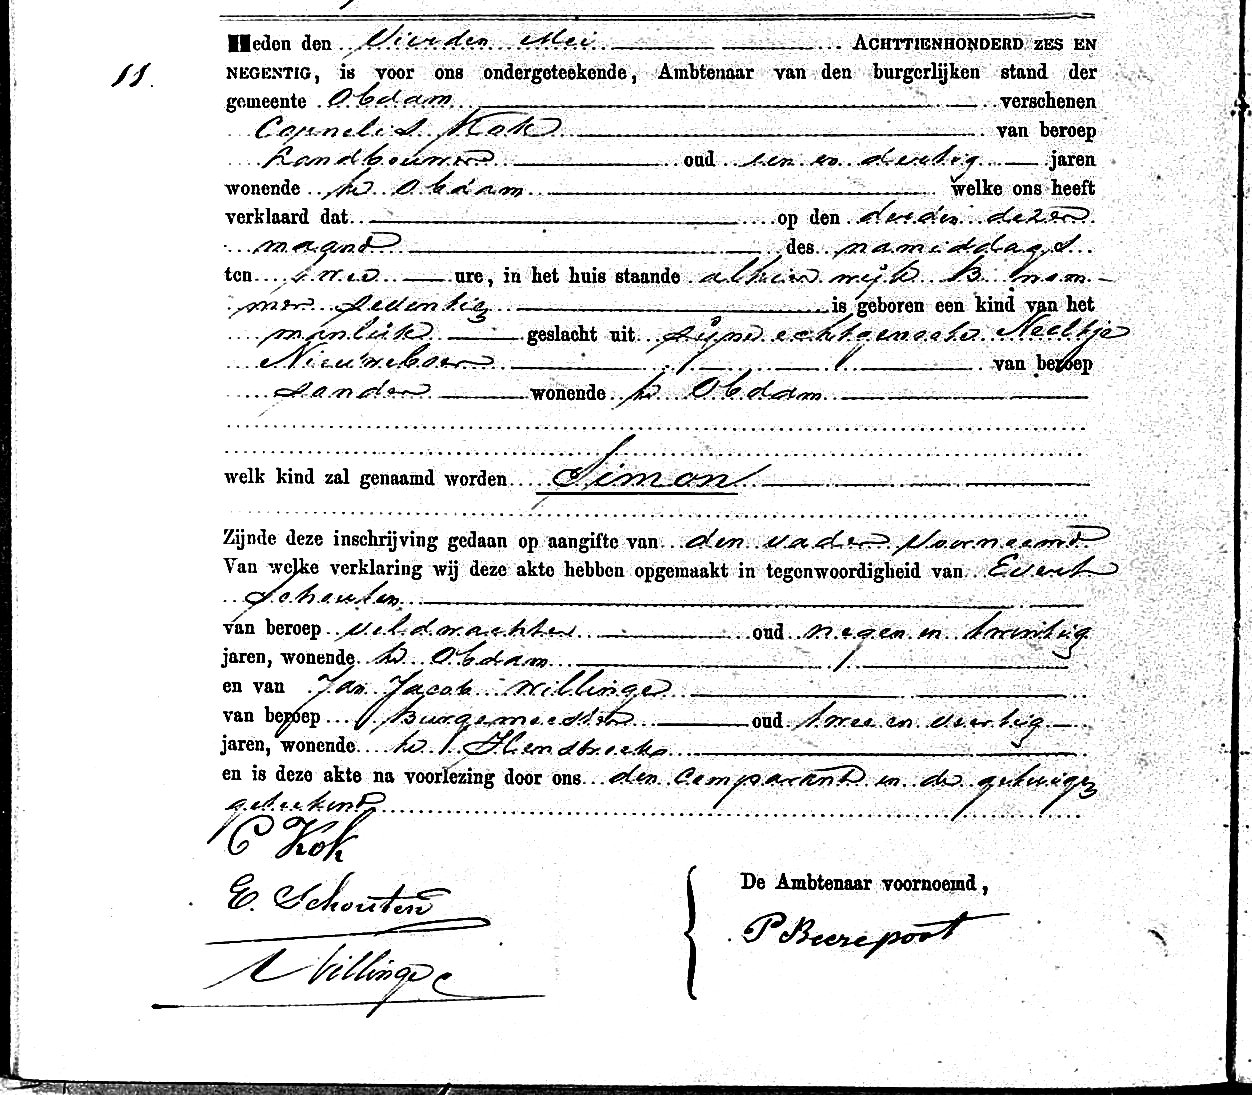 Heden den Vierden Mei ACHTTIENHONDERD ZES EN
11.
NEGENTIG, is voor ons ondergeteekende, Ambtenaar van den burgerlijken stand der
gemeente Obdam verschenen
Cornelis Kok van beroep
Landbouwer oud een en dertig jaren
wonende te Obdam welke ons heeft
verklaard dat op den derden dezer
maand des namiddags
ten twee ure, in het huis staande alhier wijk B num-
mer seventig is geboren een kind van het
manlijk geslacht uit zijne echtgenoote Neeltje
Nieuweboer van beroep
zonder wonende te Obdam
welk kind zal genaamd worden Simon
Zijnde deze inschrijving gedaan op aangifte van den vader voornoemd
Van welke verklaring wij deze akte hebben opgemaakt in tegenwoordigheid van Evert
Schouten
van beroep veldwachter oud negen en twintig
jaren, wonende te Obdam
en van Jan Jacob Willinge
van beroep Burgemeester oud twee en veertig
jaren, wonende te Hensbroek
en is deze akte na voorlezing door ons den comparant en de getuigen
geteekend
C Kok
E. Schouten
De Ambtenaar voornoemd,
P Beerepoot
Willinge